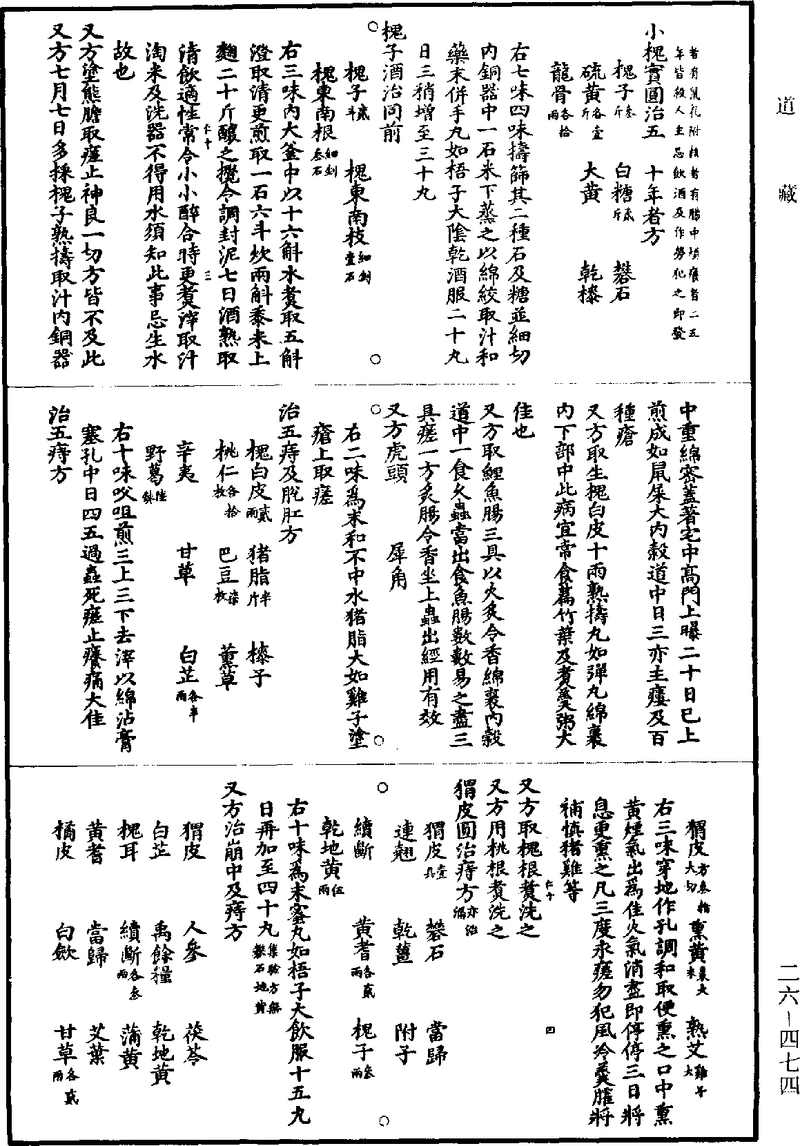 道藏
若有鼠乳附核者有腸中填癢者二五
年皆殺人主忌飲酒及作勞犯之即發
小槐實圓治五十年者方
槐子叁斤 白糖貳斤 礬石
硫黃各壹斤 大黃 乾漆
龍骨各拾兩
右七味四味擣篩其二種石及糖並細切
內銅器中一石米下蒸之以綿絞取汁和
藥末併手丸如梧子大陰乾酒服二十丸
日三稍增至三十丸
槐子酒治同前
槐子貳斗 槐東南枝細剉壹石
槐東南根細剉叁石
右三味內大釜中以十六斛水煑取五斛
澄取清更煎取一石六斗炊兩斛黍米上
麴二十斤釀之攪令調封泥七日酒熟取
清飲適性常令小小醉合時更煑滓取汁
淘米及洗器不得用水須知此事忌生水
故也
又方塗熊膽取瘥止神良一切方皆不及此
又方七月七日多採槐子熟擣取汁內銅器
中重綿密蓋著宅中高門上曝二十日已上
煎成如鼠屎大內穀道中日三亦主瘻及百
種瘡
又方取生槐白皮十兩熟擣丸如彈丸綿裹
內下部中此病宜常食萹竹葉及煑羹粥大
佳也
又方取鯉魚腸三具以火炙令香綿裹內穀
道中一食久蟲當出食魚腸數數易之盡三
具瘥一方炙腸令香坐上蟲出經用有效
又方虎頭 犀角
右二味爲末和不中水猪脂大如雞子塗
瘡上取瘥
治五痔及脫肛方
槐白皮貳兩 猪脂半斤 㯃子
桃仁各拾枚 巴豆柒枚 薰草
辛夷 甘草 白芷各半兩
野葛陸銖
右十味㕮咀煎三上三下去滓以綿沾膏
塞孔中日四五過蟲死瘥止癢痛大佳
治五痔方
猬皮方叁指大切 熏黃棗大末 熟艾雞子大
右三味穿地作孔調和取便熏之口中熏
黃煙氣出爲佳火氣消盡即停停三日將
息更熏之凡三度永瘥勿犯風冷羹臛將
補慎猪雞等
又方取槐根煑洗之
又方用桃根煑洗之
猬皮圓治痔方亦治漏
猬皮壹具 礬石 當歸
連翹 乾薑 附子
續斷 黃耆各貳兩 槐子叁兩
乾地黃伍兩
右十味爲末蜜丸如梧子大飲服十五丸
日再加至四十丸集驗方無礬石地黃
又方治崩中及痔方
猬皮 人參 茯苓
白芷 禹餘糧 乾地黃
槐耳 續斷各叁兩 蒲黃
黃耆 當歸 艾葉
橘皮 白斂 甘草各貳兩
二六－四七四